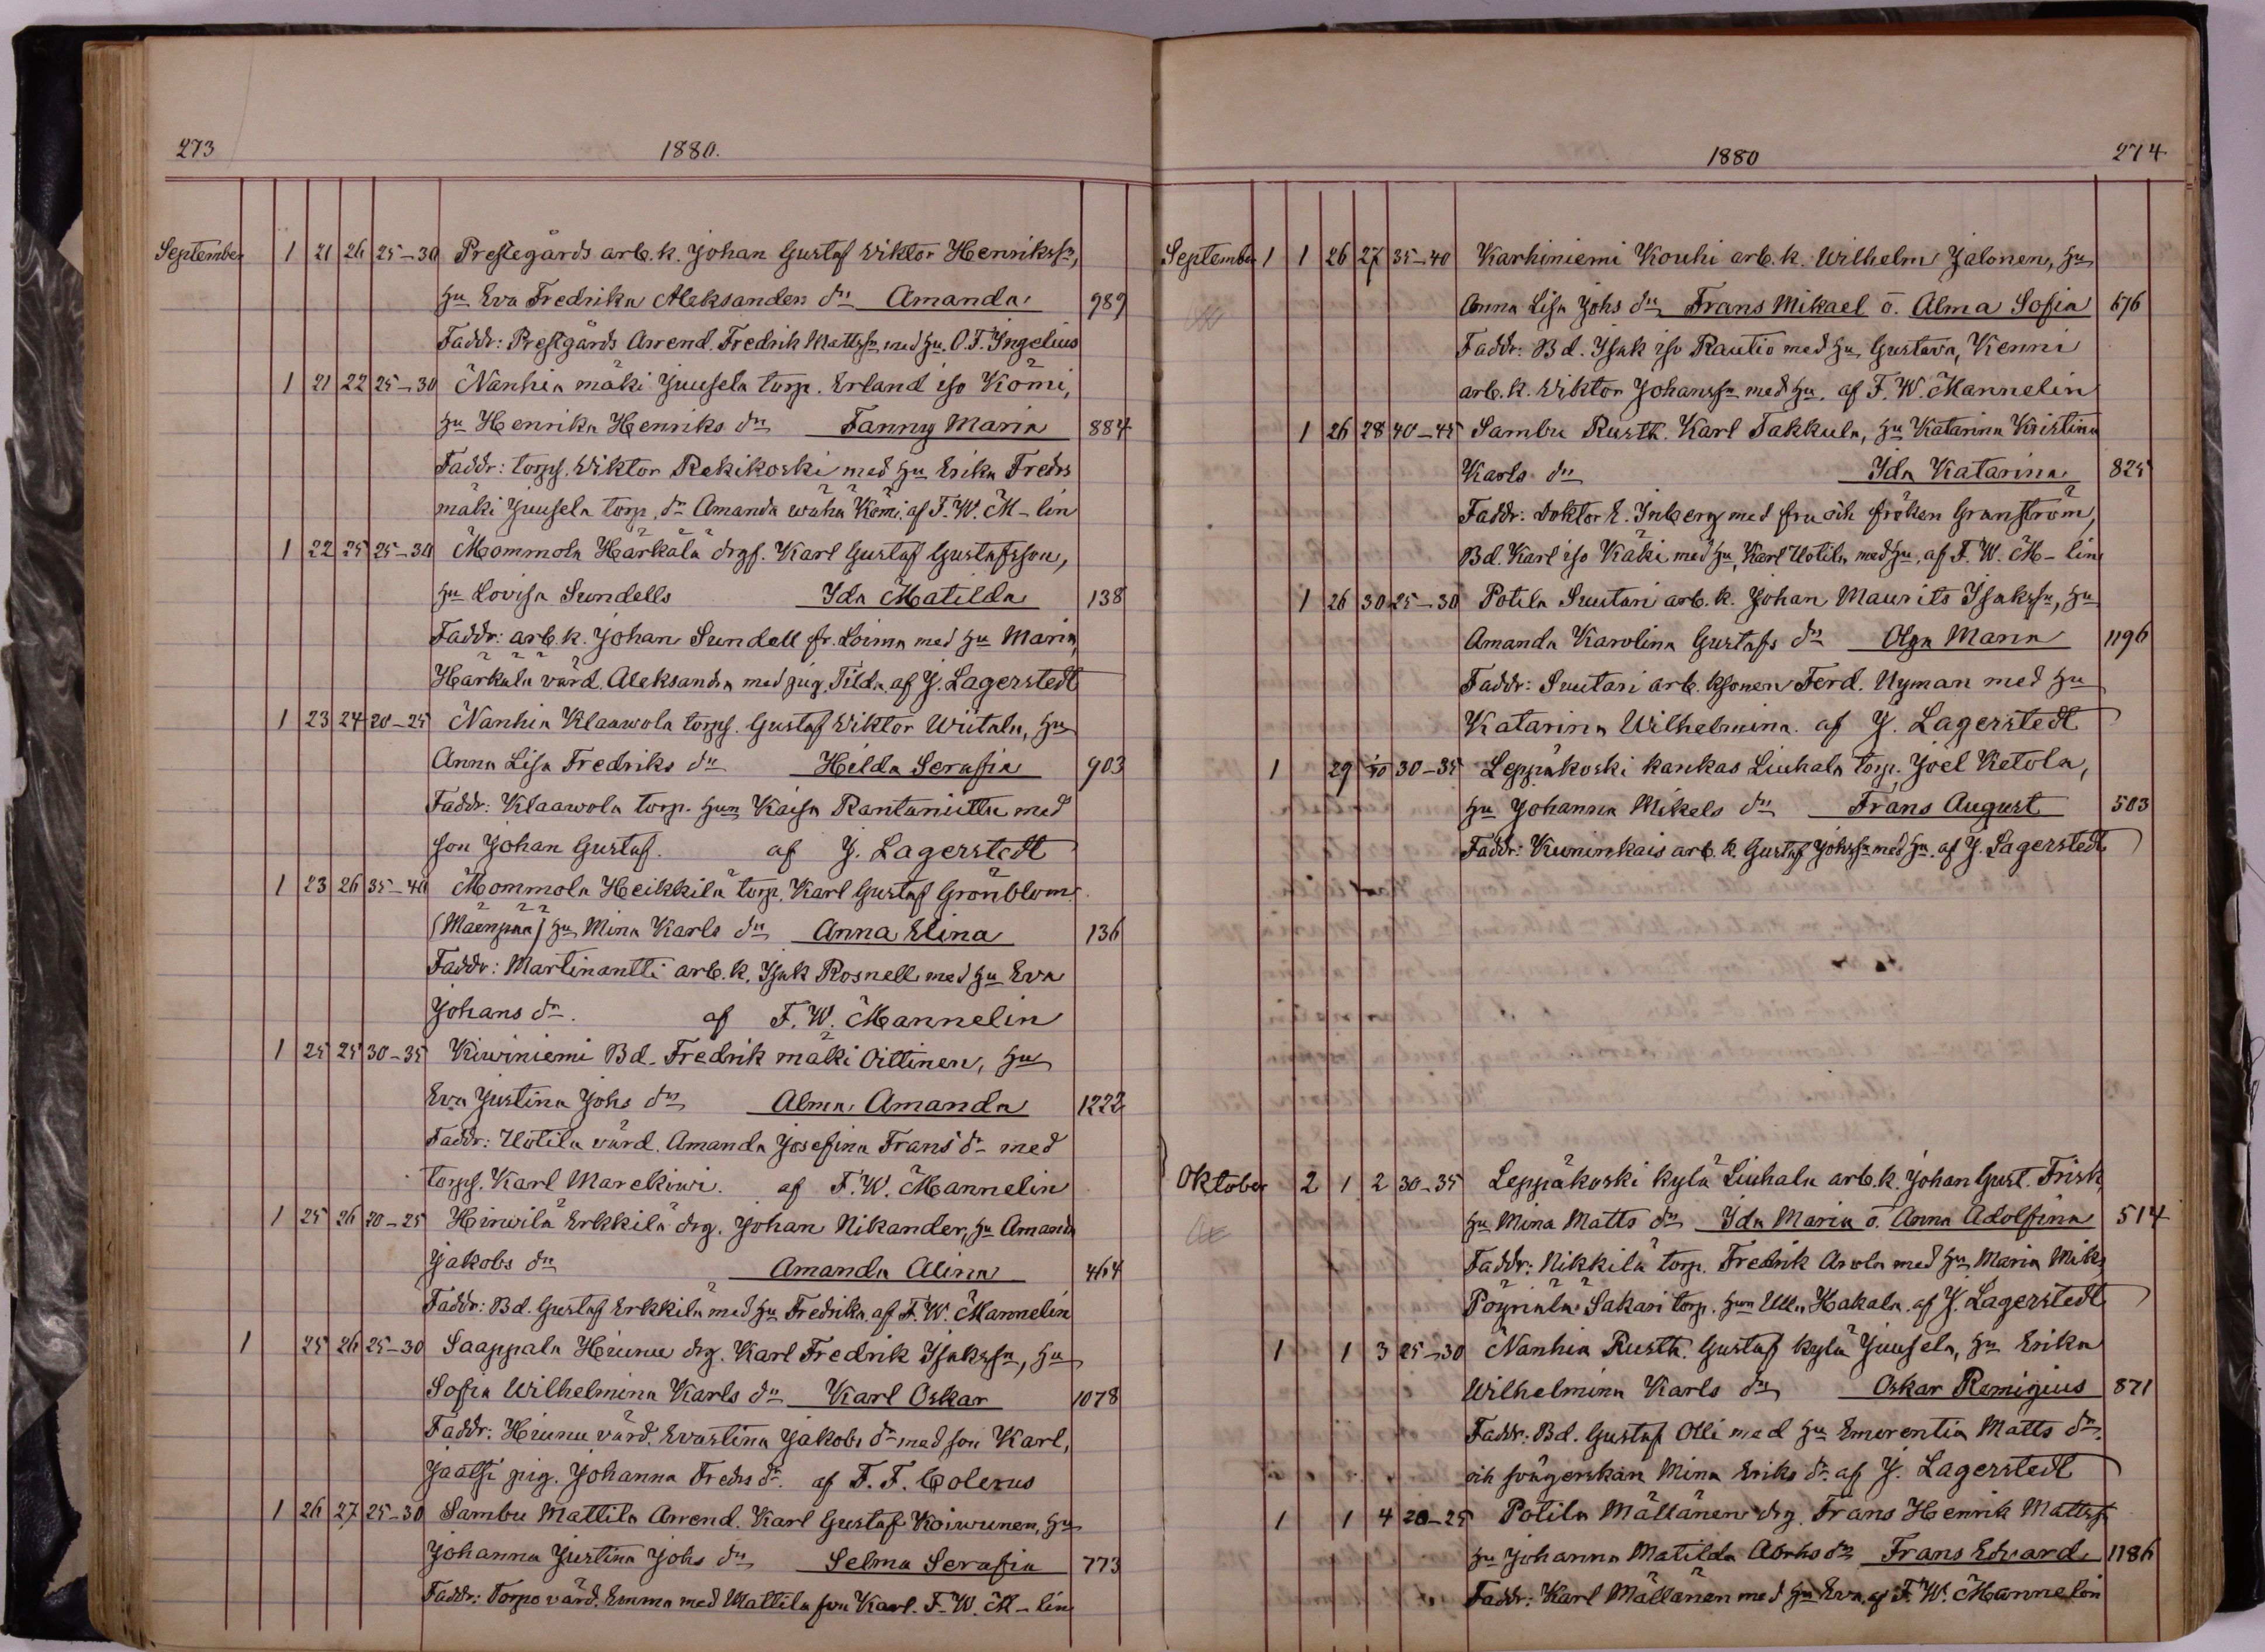 273 1880.
September 1 21 26 25-30 Prestegårds arb.k. Johan Gustaf Viktor Henrikss:n,
hu Eva Fredrika Aleksanders dr Amanda 989
Faddr: Prestgårds Arrend. Fredrik Mattss:n med hu. O.F. Ingelius
1 21 22 25-30 Nanhia mäki Juusela torp. Erland iso Kömi,
hu Henrika Henriks dr Fanny Maria 884
Faddr: torps. Wiktor Rekikoski med hu Erika Fredrs
mäki Juusela torp. dr Amanda wähä Kömi. af F.W. M-lin
1 22 25 25-30 Mommola Härkälä drgs. Karl Gustaf Gustafsson,
hu Lovisa Sundells Ida Matilda 138
Faddr: arb.k. Johan Sundell fr. Loima med hu Maria,
Härkälä värd. Aleksandra med pig. Tilda. af J. Lagerstedt
1 23 24 20-25 Nanhia Klaawola torps. Gustaf Viktor Wiitala, hu
Anna Lisa Fredriks dr Hilda Serafia 903
Faddr: Klaawola torp. hun Kaisa Rantaniittu med
son Johan Gustaf. af J. Lagerstedt
1 23 26 35-40 Mommola Heikkilä torp. Karl Gustaf Grönblom
(Mäenpää) hu Mina Karls dr Anna Elina 136
Faddr: Martinantti arb.k. Isak Rosnell med hu Eva
Johans dr. af F.W. Mannelin
1 25 25 30-35 Kiwiniemi Bd. Fredrik mäki Oittinen, hu
Eva Justina Johs dr Alma Amanda 1222
Faddr: Uotila värd. Amanda Josefina Frans dr med
torps. Karl Marekiwi. af F.W. Mannelin
1 25 26 20-25 Hirwilä Erkkilä drg. Johan Nikander, hu Amanda
Jakobs dr Amanda Alina 464
Faddr: Bd. Gustaf Erkkilä med hu Fredrika. af F.W. Mannelin
1 25 26 25-30 Saappala Hiunu drg. Karl Fredrik Isakss:n, hu
Sofia Wilhelmina Karls dr Karl Oskar 1078
Faddr: Hiunu värd. Evastina Jakobs dr med son Karl,
Jaatsi pig. Johanna Fredrs dr. af F.F. Colerus
1 26 27 25-30 Sambu Mattila Arrend. Karl Gustaf Koiwunen, hu
Johanna Justina Johs dr Selma Serafia 773
Faddr: Torpo värd. Emma med Mattila son Karl. F.W. M-lin
1880 274
September 1 1 26 27 35-40 Karhiniemi Kouhi arb.k. Wilhelm Jalonen, hu
Anna Lisa Johs dr Frans Mikael o. Alma Sofia 676
Faddr: Bd. Isak iso Rautio med hu Gustava, Kenni
arb.k. Viktor Johanss:n med hu. af F.W. Mannelin
1 26 28 40-45 Sambu Rusth. Karl Takkula, hu Katarina Kristina
Karls dr Ida Katarina 825
Faddr: Doktor E. Inberg med fru och fröken Granström,
Bd. Karl iso Käki med hu, Karl Uotila med hu. af F.W. M-lin
1 26 30 25-30 Potila Suutari arb.k. Johan Maurits Isakss:n, hu
Amanda Karolina Gustafs dr Olga Maria 1196
Faddr: Suutari arb. Ksonen Ferd. Nyman med hu
Katarina Wilhelmina. af J. Lagerstedt
1 29 30-35 Leppäkoski kankas Liuhala torp. Joel Ketola,
hu Johanna Mikels dr Frans August 503
Faddr: Kuninkais arb.k. Gustaf Johss:n med hu. af J. Lagerstedt
Oktober 2 1 2 30-35 Leppäkoski kylä Liuhala arb.k. Johan Gust. Frisk,
hu Mina Matts dr Ida Maria o. Anna Adolfina 514
Faddr: Nikkilä torp. Fredrik Arola med hu Maria Miks
Pöyriälä Sakari torp. hun Ulla Hakala. af J. Lagerstedt
1 1 3 25-30 Nanhia Rusth. Gustaf kylä Juusela, hu Erika
Wilhelmina Karls dr Oskar Remigius 871
Faddr: Bd. Gustaf Olli med hu Emerentia Matts dr.
och svägerskan Mina Eriks dr. af J. Lagerstedt
1 1 4 20-25 Potila Mältänen drg. Frans Henrik Mattss:
hu Johanna Matilda Abrhs dr Frans Edvard 1186
Faddr: Karl Mältänen med hu Eva. af F.W. Mannelin